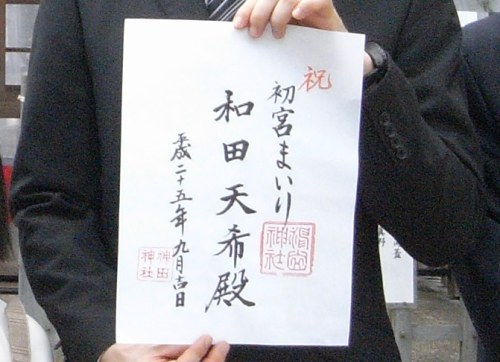 祝
初宮まいり
和田天希殿
平成二十五年九月吉日
神社
神社